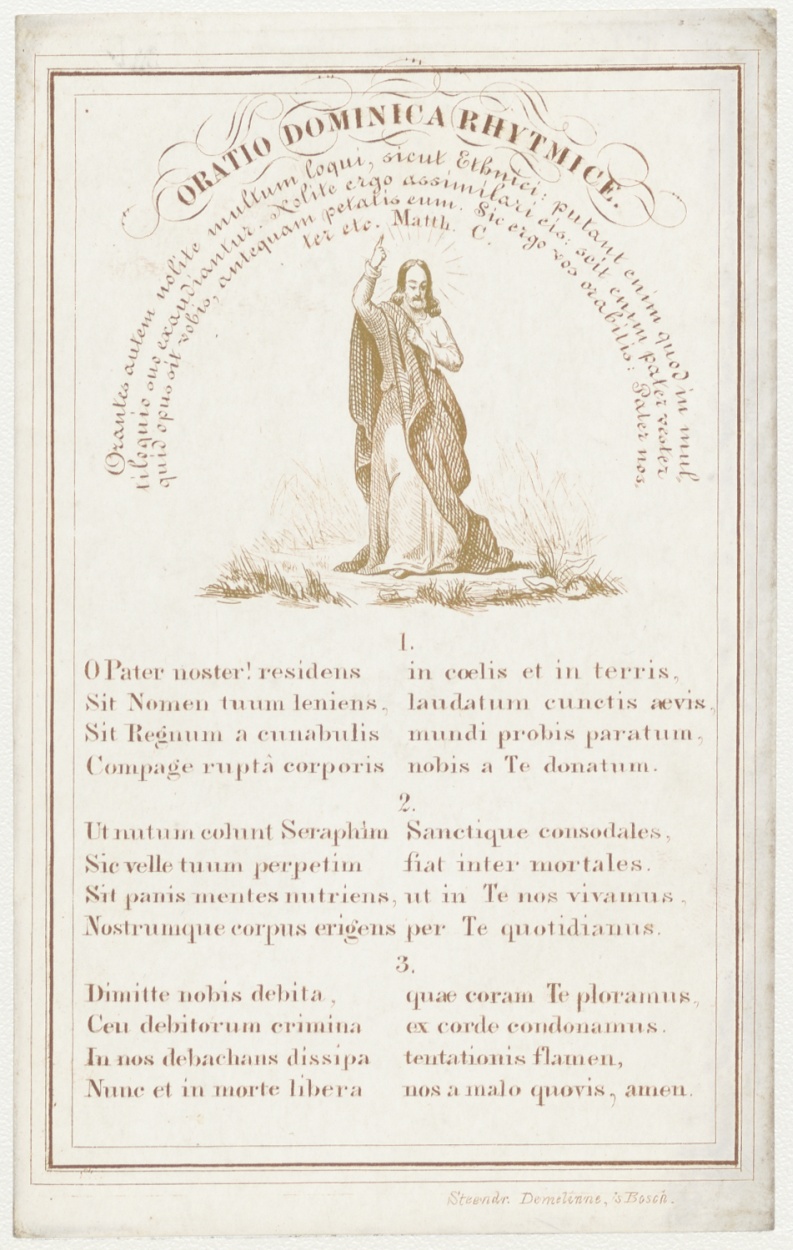 ORATIO DOMINICA RHYTMICE.
Orantes autem nolite multum loqui, sicut Ethnici: putant enim quod in mul
tiloquio suo exaudiantur. Nolite ergo assimilari eis: scit enim pater vester
quid opus sit vobis, antequam petatis eum. Sic ergo vos orabitis: Pater nos,
ter etc. Matth. C.
1.
O Pater noster! residens in coelis et in terris,
Sit Nomen tuum leniens, laudatum cunctis aevis,
Sit Regnum a cunabulis mundi probis paratum,
Compage ruptâ corporis nobis a Te donatum.
2.
Ut nutum colunt Seraphim Sanctique consodales,
Sic velle tuum perpetim fiat inter mortales.
Sit panis mentes nutriens, ut in Te nos vivamus,
Nostrumque corpus erigens per Te quotidianus.
3.
Dimitte nobis debita, quae coram Te ploramus,
Ceu debitorum crimina ex corde condonamus.
In nos debachans dissipa tentationis flamen,
Nunc et in morte libera nos a malo quovis, amen.
Steendr. Demelinne, 's Bosch.